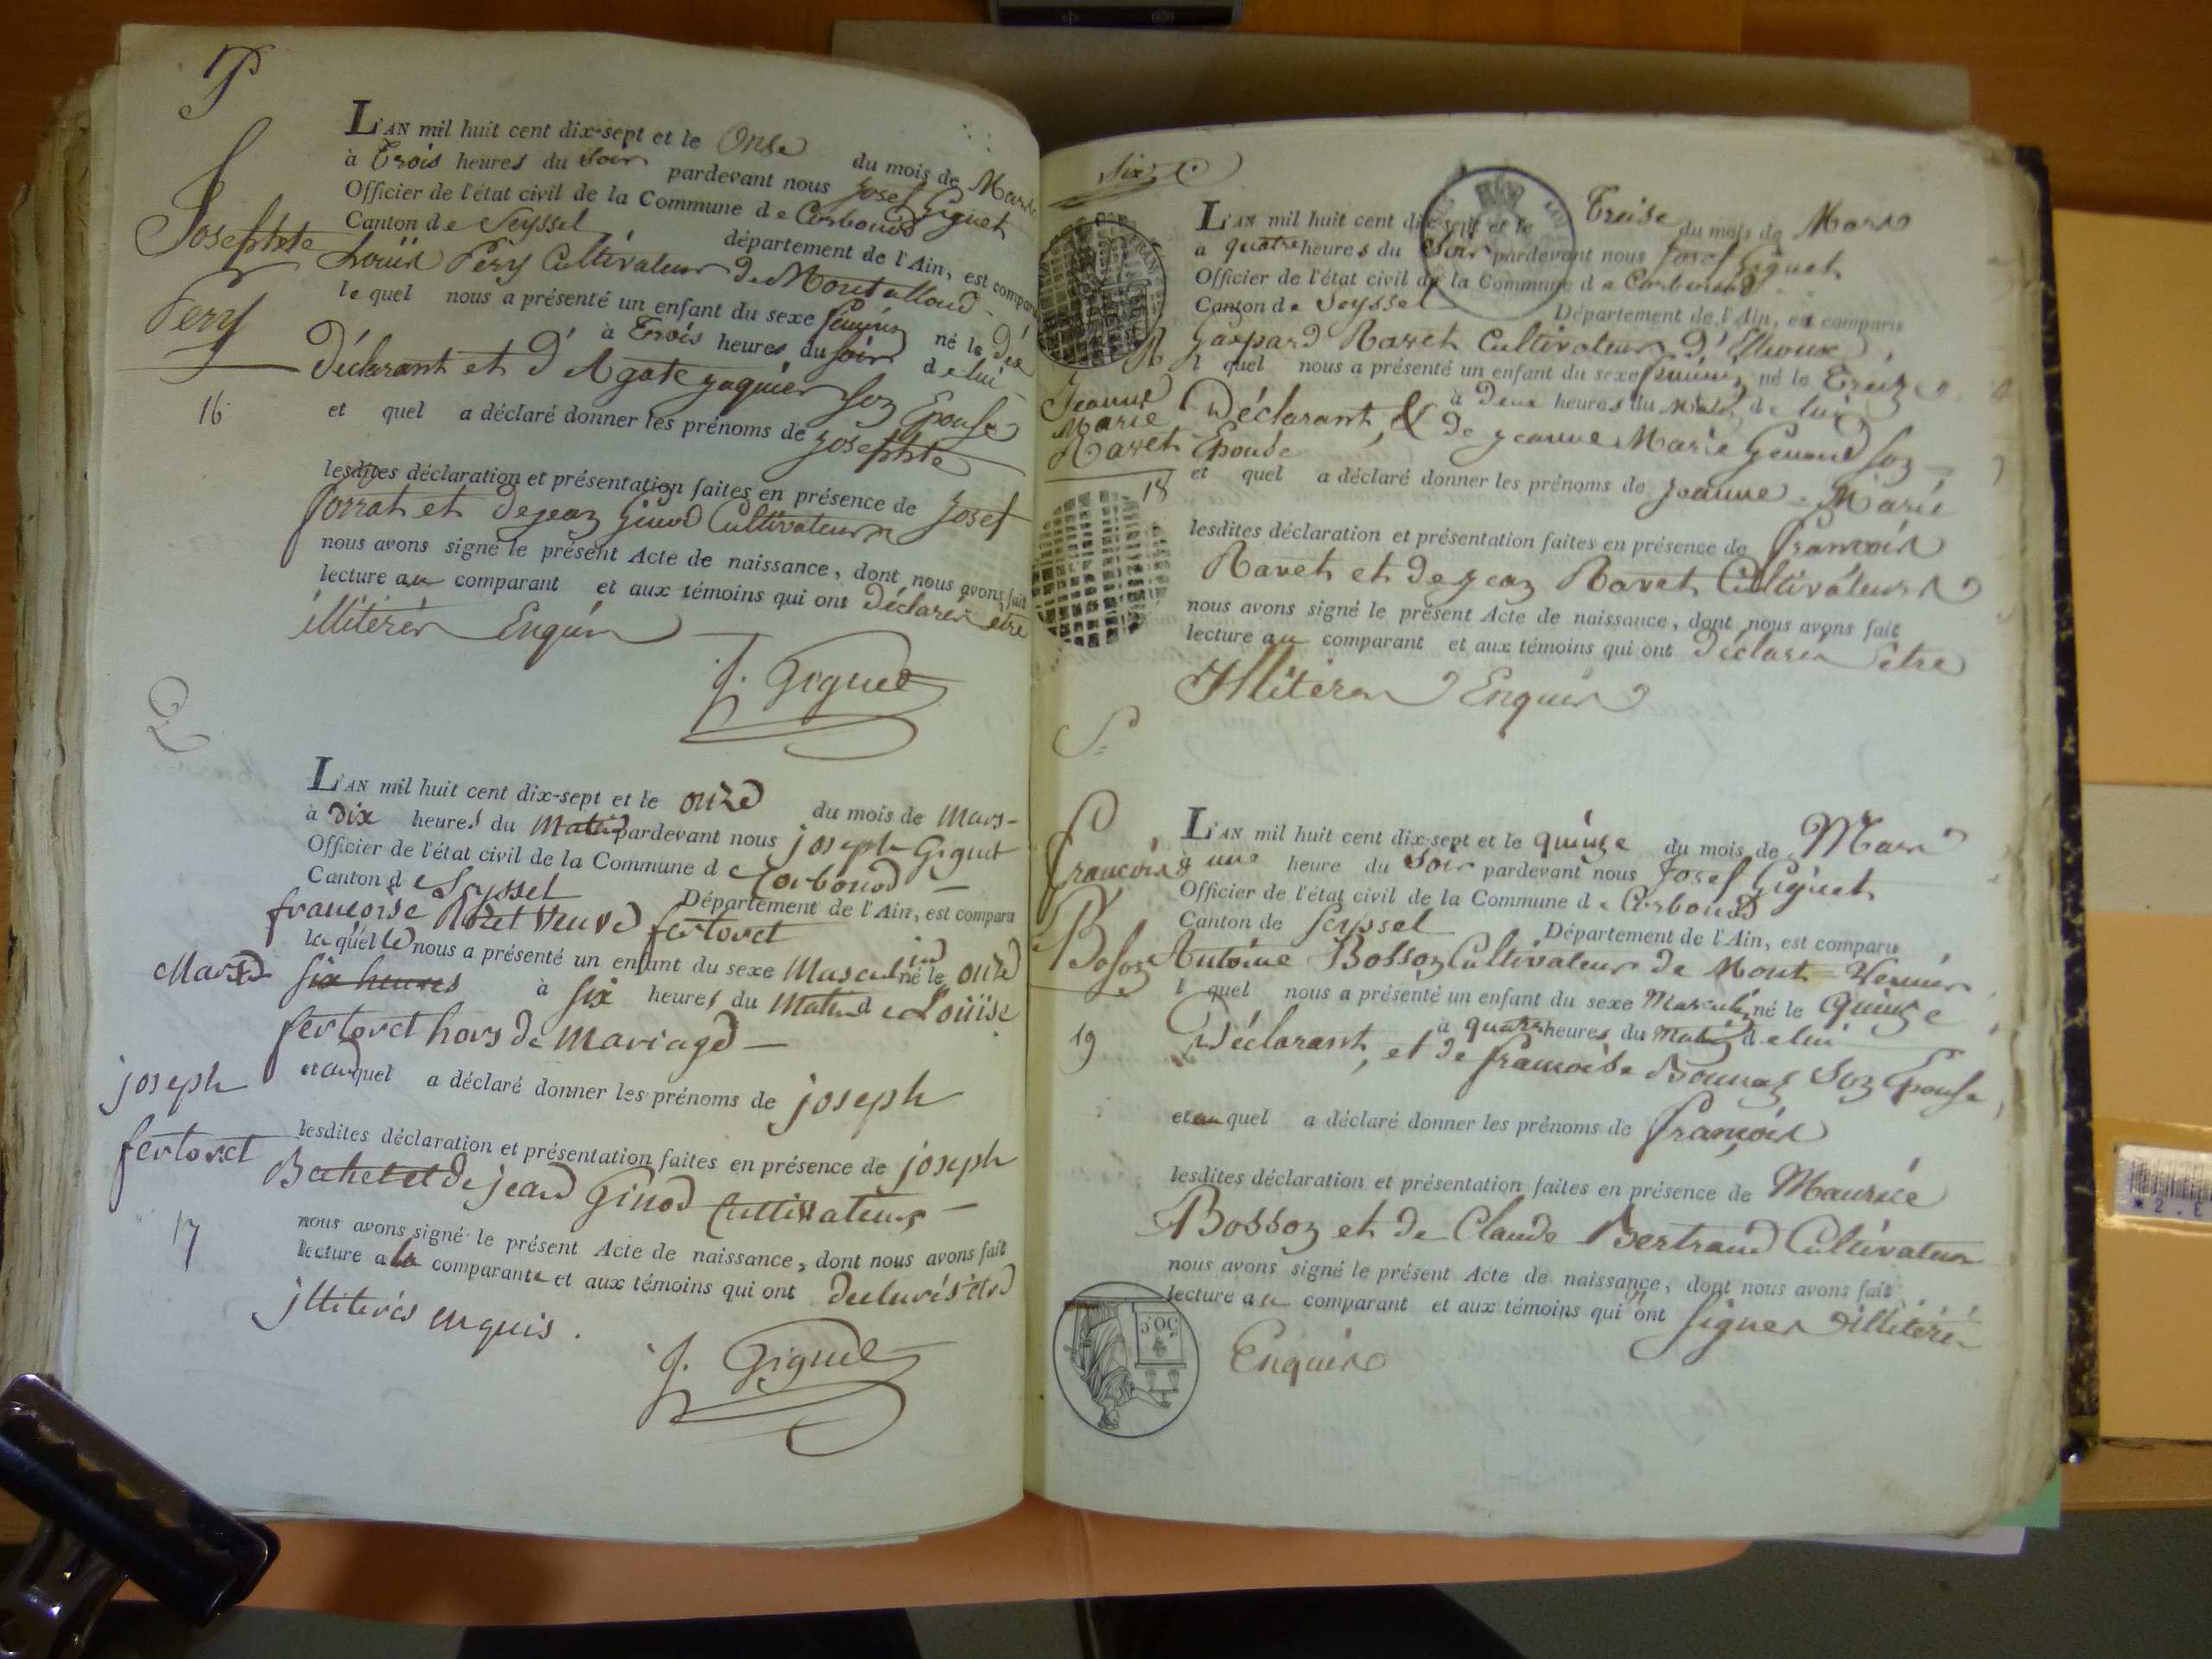 Josephte
Pery
16
L'AN mil huit cent dix-sept et le Onse du mois de Mars
à Trois heures du Soir pardevant nous Josef Giguet
Officier de l'état civil de la Commune de Corbonod
Canton de Seyssel département de l'Ain, est comparu
Louis Pery Cultivateur de
le quel nous a présenté un enfant du sexe feminin né le dix
à Trois heures du soir de lui
Déclarant et d'Agate Son Epouse
et quel a déclaré donner les prénoms de Josephte
lesdites déclaration et présentation faites en présence de Josef
et de jean Cultivateurs
nous avons signé le présent Acte de naissance, dont nous avons fait
lecture au comparant et aux témoins qui ont Déclarés etre
illiterés Enquis
J. Giguet
L'AN mil huit cent dix-sept et le onze du mois de Mars
à Dix heures du Matin pardevant nous joseph Giguet
Officier de l'état civil de la Commune de Corbonod
Canton de Seyssel Département de l'Ain, est comparu
françoise Veuve fertoret
la quelle nous a présenté un enfant du sexe Masculin né le onze
Mars six heures à six heures du Matin de Loüise
fertoret hors de Mariage
et auquel a déclaré donner les prénoms de joseph
joseph
fertoret
17
lesdites déclaration et présentation faites en présence de joseph
et de jean Ginod Cultivateurs
nous avons signé le présent Acte de naissance, dont nous avons fait
lecture a la comparante et aux témoins qui ont declarés etre
illiterés enquis.
J. Giguet
Six
Jeanne
Marie
Ravet
18
L'AN mil huit cent dix-sept et le Treise du mois de Mars
a quatre heures du Soir pardevant nous Josef Giguet
Officier de l'état civil de la Commune de Corbonod
Canton de Seyssel Département de l'Ain, est comparu
Gaspard Ravet Cultivateur
l quel nous a présenté un enfant du sexe feminin né le Treize
à Deux heures du Matin de lui
Déclarant, & de jeanne Marie Son
Epouse
et quel a déclaré donner les prénoms de jeanne Marie
lesdites déclaration et présentation faites en présence de françois
Ravet et de jean Ravet Cultivateurs
nous avons signé le présent Acte de naissance, dont nous avons fait
lecture au comparant et aux témoins qui ont Déclarés être
Illiterés Enquis
françois
Boson
19
L'AN mil huit cent dix-sept et le quinze du mois de Mars
à une heure du Soir pardevant nous Josef Giguet
Officier de l'état civil de la Commune de Corbonod
Canton de Seyssel Département de l'Ain, est comparu
Antoine Bosson Cultivateur de Mont=
l quel nous a présenté un enfant du sexe Masculin né le Quinze
à quatre heures du Matin de lui
Déclarant, et de francoise Son Epouse
et au quel a déclaré donner les prénoms de françois
lesdites déclaration et présentation faites en présence de Maurice
Bosson et de Claude Bertrand Cultivateurs
nous avons signé le présent Acte de naissance, dont nous avons fait
lecture au comparant et aux témoins qui ont signer illitérés
Enquis